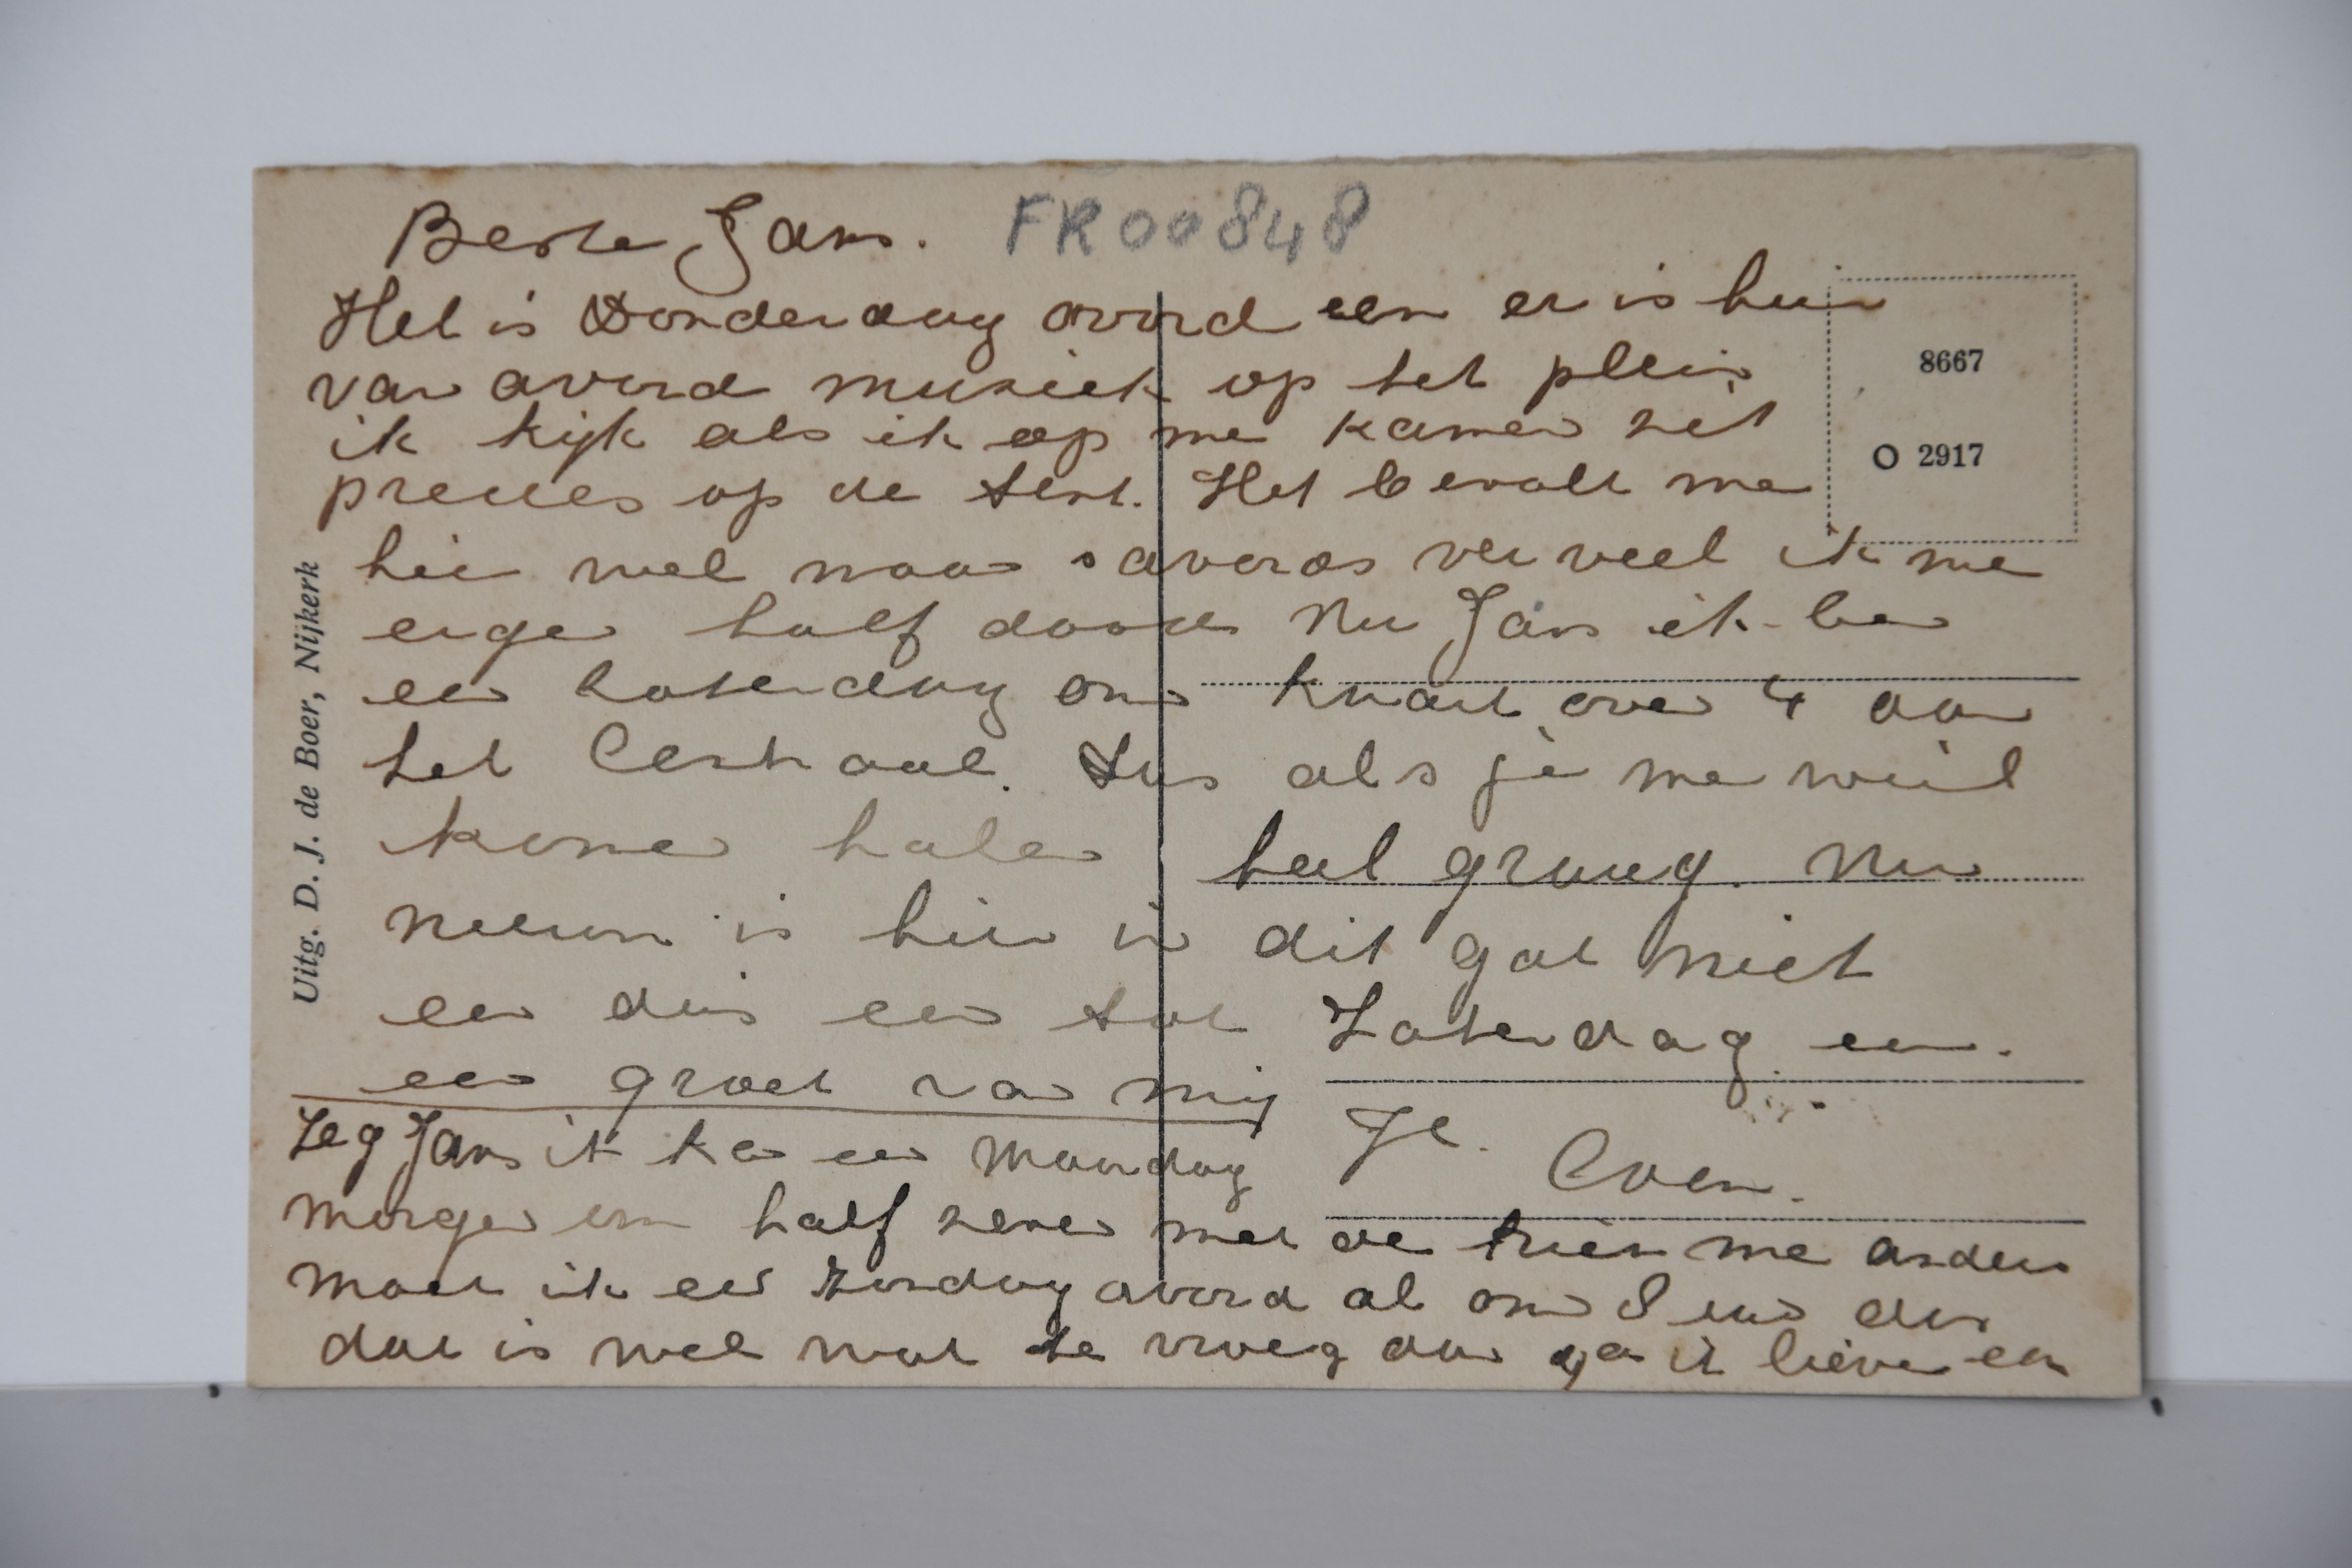 Beste Jans. FR00848
Het is Donderdag avond een er is hier
van avond musiek op het plein
ik kijk als ik op me kamer zit
precies op de tent. Het bevalt me
hier wel maar s avonds verveel ik me
eige half dood Nu Jans ik ben
een Zaterdag om kwart over 4 aan
het Centraal. Dus als je me wiel
komen halen heel graag. Nu
nieuws is hier in dit gat niet
een dus een tot Zaterdag een.
een groet van mij
Je. Coen.
Zeg Jans ik ka een Maandag
morgen om half zeven met de trien me anders
moet ik een Zondag avond al om 8 uur dus
dat is wel wat te vroeg dan ga ik liever en
8667
O 2917
Uitg. D. J. de Boer, Nijkerk